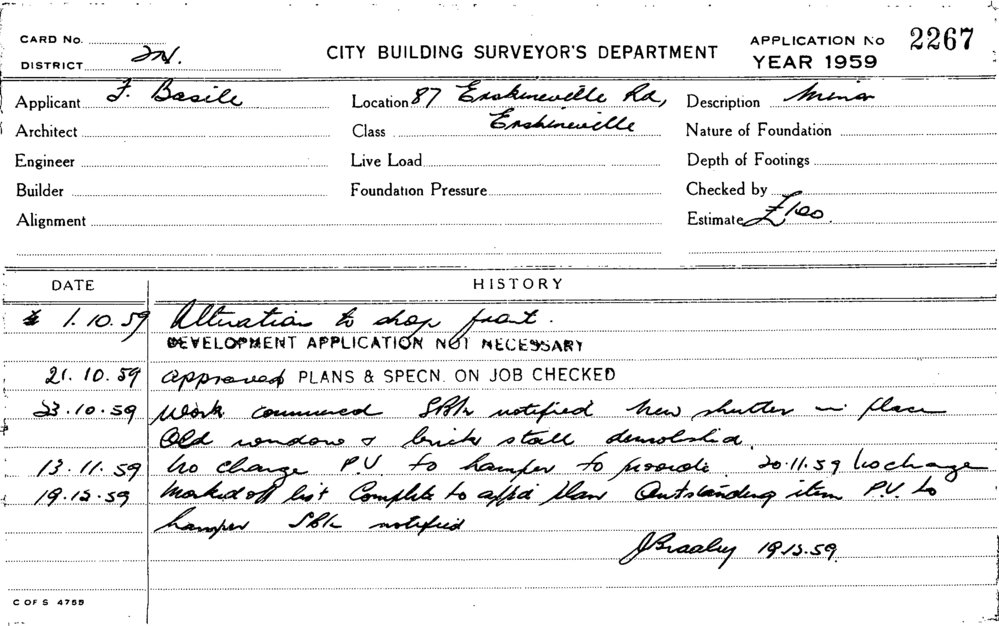 CARD No.
DISTRICT 2N.
CITY BUILDING SURVEYOR'S DEPARTMENT
APPLICATION No 2267
YEAR 1959
Applicant F. Basile
Location 87 Erskineville Rd,
Description Minor
Architect
Class Erskineville
Nature of Foundation
Engineer
Live Load
Depth of Footings
Builder
Foundation Pressure
Checked by
Alignment
Estimate £100.
DATE HISTORY
1.10.59 Alteration to shop front.
DEVELOPMENT APPLICATION NOT NECESSARY
21.10.59 approved PLANS & SPECN. ON JOB CHECKED
23.10.59 Work commenced notified New shutter in place
Old window & brick stall demolished.
13.11.59 No change P.V. to hamper to provide. 20.11.59 No change
19.12.59 Marked off list Complete to app'd plan Outstanding item P.V. to
hamper notified
19.12.59.
C OF S 4755